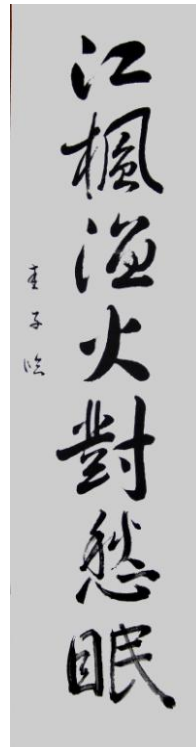 江楓漁火對愁眠
子临